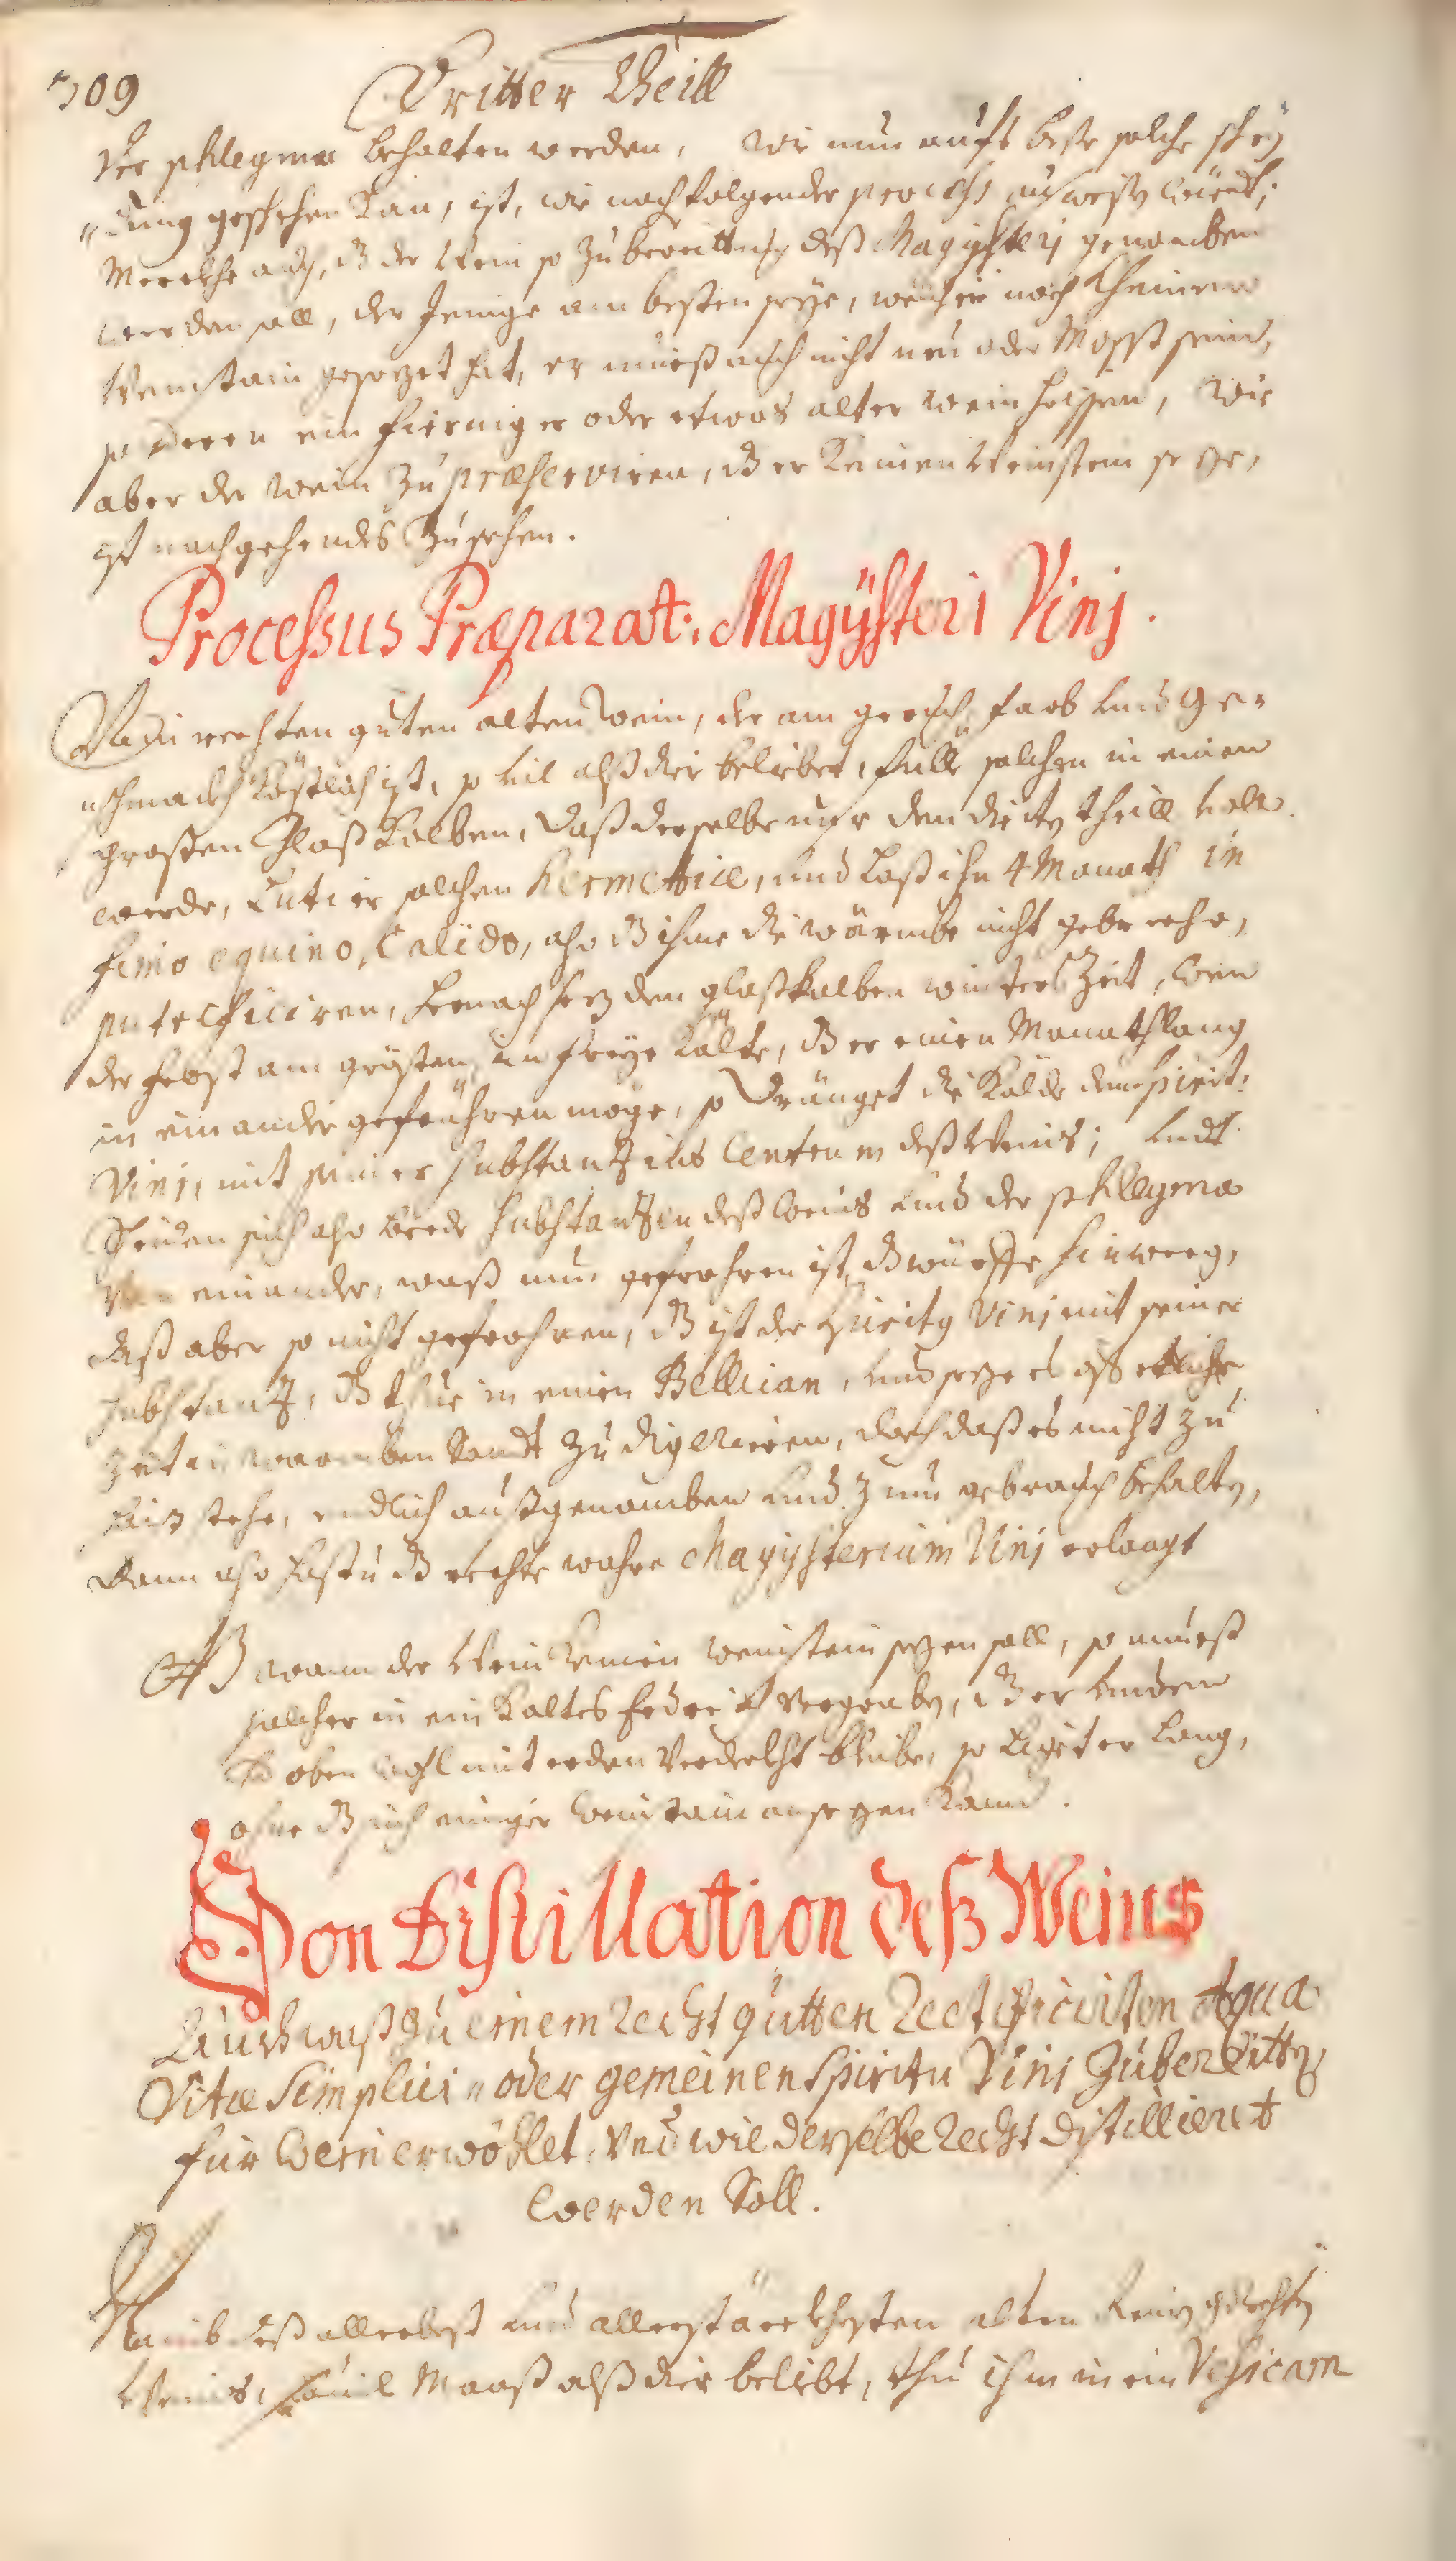 709 Dritter Theill
der phlegma behalten werden, wie nun aufs beste solche schey
dung geschehen kan, ist, wie nachfolgender process ausweist würdt;
Merckhe auch, dz der Wein so zu bereittung deß Magysterj genomben
werden soll, der Jenige am besten seye, welcher noch kheinen
Weinstain gesezet hat, er mueß auch nicht neu oder Most sein,
sonderen ein fierniger oder etwas alter wein heissen, wie
aber der wein zu præserviren, dz er keinen Weinstein seze,
ist nachgehendes zu sehen.
Processus Præparat: Magÿsteri Vinj.
Nimb rechten guten alten Wein, der am geruch, farb und ge=
schmackh köstlich ist, so vil alß dir beliebet, fülle solchen in einen
großen Glaß Kolben, daß derselbe nur den dritten theill voll
werde, Lutier solchen hermetticè, und laß ihn 4 Monath in
fimo equino, Calido, also dz ihme die wärmbe nicht gebreche,
putrificiren, hernach sez den glaßkolben winters Zeit, wen
der frost am grösten, in freye kälte, dz er einen Monath lang
in einander gefrühren möge, so dränget die Kälde dem spirit:
Vinj, mit seiner substantz ins Centrum deß Weins; undt
scheiden sich also beede substantzen deß Weins und der phlegma
von einander, waß nun gefrohren ist, dz würffe hinweeg,
daß aber so nicht gefrohren, dz ist der spiritus Vinj mit seiner
substantz, dz thue in einen Pellican, und seze es auf etliche
zeit in warmben Sandt zu digerieren, doch daß es nicht zu
haiß stehe, endlich außgenomben und zum gebrauch behalten,
dann also hastu dz rechte wahre Magÿsterium Vinj erlangt
NB wann der Wein keinen weinstein sezen soll, so mueß
solcher in ein kaltes Erdreich vergraben, dz er unden
und oben wohl mit erden verdeckht bleibe, so ligt er lang,
ohne dz sich einiger Weinstain ansezen kann.
Von Distillation deß Weins
Auch waß zu einem recht gutten rectificirten Aqua
Vitæ Simplici oder gemeinen spiritu Vini zubereitten,
für Wein erwöhlet, und wie derselbe recht distilliert
werden Soll.
Nimb deß allerbest und allerstärckhesten alten Rein gerechten
Weins, sovil Maaß alß dir beliebt, thu ihn in ein Vesicam